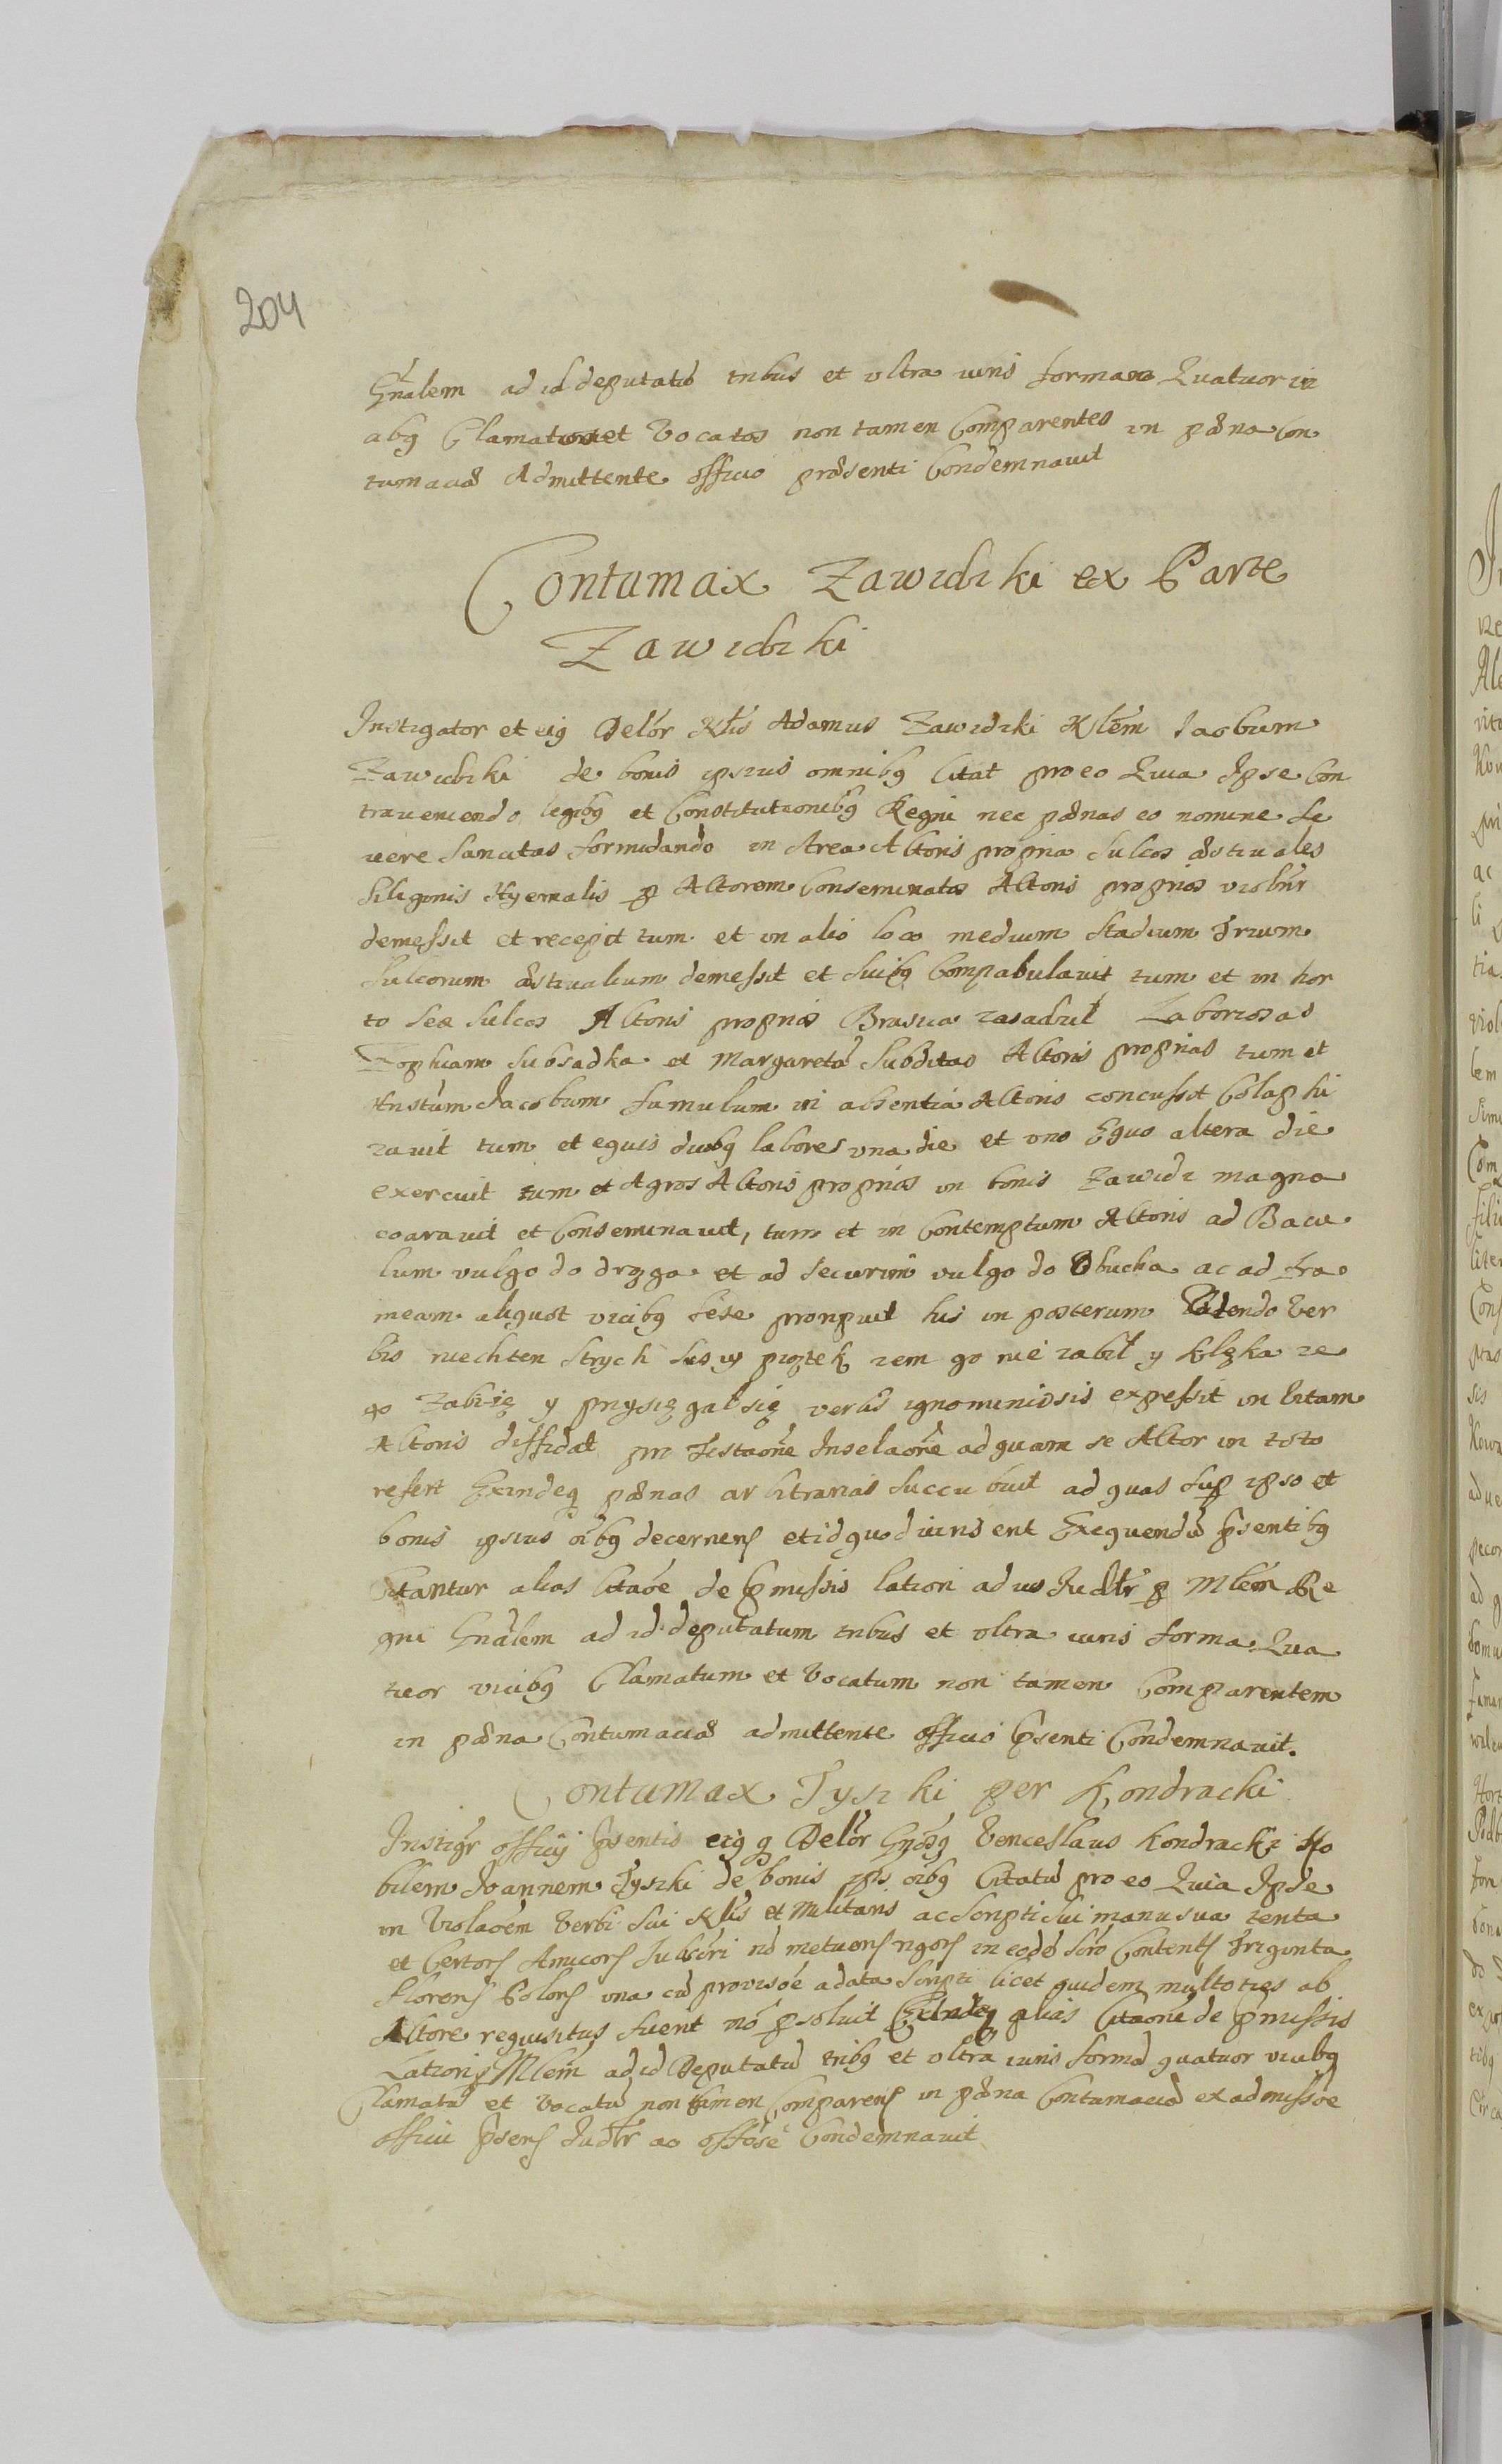 204
Gnalem ad id deputatū tribus et ultra iuris formam Quatuor vi
cibq Clamatos et Vocatos non tamen Comparentes in pæna Con
tumaciæ Admittente officio præsenti Condemnavit
Contumax Zawidzki ex Parte
Zawidzki
Instigator et eiq Delor Nlis Adamus Zawidzki Nlem Jacobum
Zawidzki de bonis ipsius omnibq Citat pro eo Quia Ipse Con
traveniendo legibq et Constitutionibq Regni nec pænas eo nomine se
vere Sancitas formidando in Area Actoris propria Sulcos æstivales
Siliginis Hyemalis p Actorem Conseminatos Actoris proprios violntr
demessit et recepit tum et in alio loco medium Stadium Trium
Sulcorum æstivalium demessit et Suibq Compabulavit tum et in hor
to Sex Sulcos Actoris proprios Brasica zasadził Laboriosas
Zophiam Subsadka et Margaretā Subditas Actoris proprias tum et
Hnstum Jacobum famulum in absentia Actoris concussit Colaphi
zavit tum et equis duobq labores una die et uno Equo altera die
exercuit tum et Agros Actoris proprios in bonis Zawidz magna
coaravit et Conseminavit, tum et in Contemptum Actoris ad Bacu
lum vulgo do drąga et ad securim vulgo do Obucha ac ad fra
meam aliquot vicibq sese proripuit his in posterum Utendo Ver
bis niechten Strych
go zabiię y przysięgał się verbis ignominiosis expessit in Vitam
Actoris diffidat pr Testaone Inselaone ad quam se Actor in toto
refert Exindeq pænas arbitrarias succubuit ad quas sup ipso et
bonis ipsius oibq decernens et id quod iuris erit Exequendū Psentibq
Citantur alias Citaoe de Pmissis latiori ad us Judtr p Mlem Re
gni Gnalem ad id deputatum tribus et ultra iuris forma Qua
tuor vicibq Clamatum et Vocatum non tamen Comparentem
in pæna Contumaciæ admittente officio Psenti Condemnavit.
Contumax Tyszki per Kondracki
Instigr officij Psentis eiq q Delor Gnosq Venceslaus Kondracki No
bilem Joannem Tyszki de bonis ips oibq Citatū pro eo Quia Ipse
in Violaoem Verbi Sui Nlis et Militaris ac Scripti Sui manu sua tenta
et Certors Amicors Subscri no metuens rigors in eodē Scro Contents Triginta
florens Polons una cū provisoe a data Scripti licet quidem multoties ab
Actore requisitus fuerit no psoluit Exindeq alias Citaone de Pmissis
Latiori p Mlem ad id Deputatū tribq et ultra iuris formā quatuor vicibq
Clamatū et Vocatū non tamen Comparens in pæna Contumaciæ ex admissoe
officii Psens Judtr ac offose Condemnavit